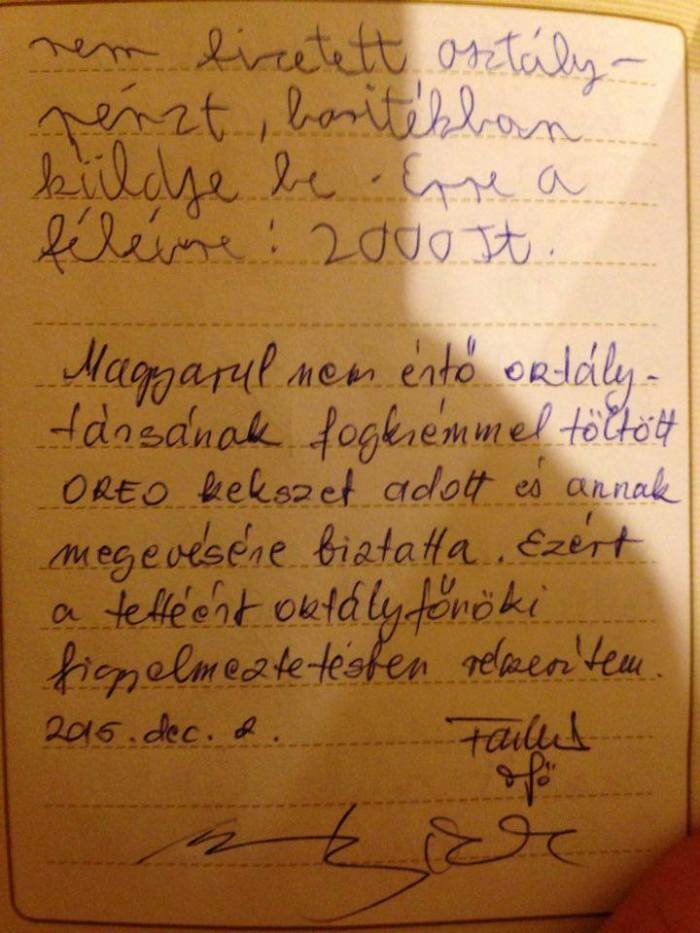 nem fizetett osztály-
pénzt, borítékban
küldje be. Erre a
félévre: 2000 Ft.
Magyarul nem értő osztály-
társának fogkrémmel töltött
OREO kekszet adott és annak
megevésére biztatta. Ezért
a tettéért osztályfőnöki
figyelmeztetésben részesítem.
2015. dec. 2.
ofő